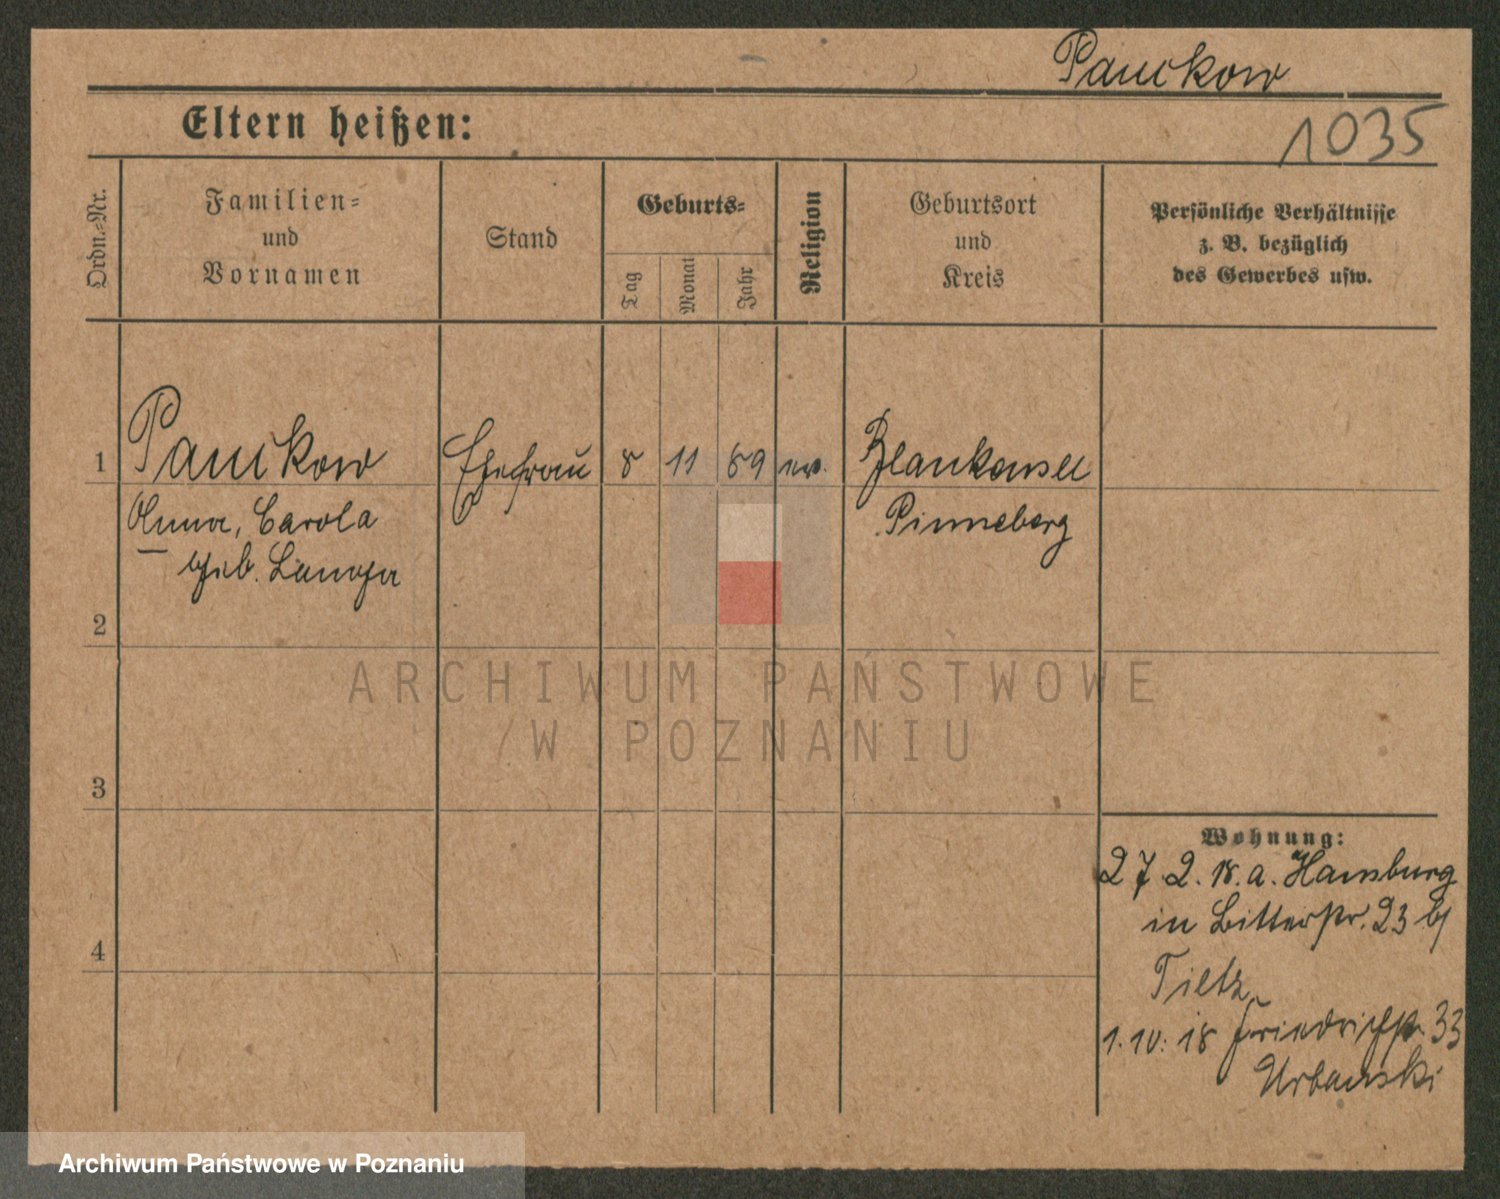 Panckow
1035
Eltern heißen:
Ordn.-Nr.
Familien- und Vornamen
Stand
Geburts-
Tag
Monat
Jahr
Religion
Geburtsort und Kreis
Persönliche Verhältnisse
z. B. bezüglich
des Gewerbes usw.
1
Panckow
Ehefrau
8
11
89
ev.
Blankensee
Anna, Carola
Pinneberg
geb.
2
ARCHIWUM PAŃSTWOWE
W POZNANIU
3
Wohnung:
27.2.18. a. Hamburg
in Bitterstr. 23 b/
4
Tietz
1.10.18 Friedrichstr. 33
Urbanski
Archiwum Państwowe w Poznaniu